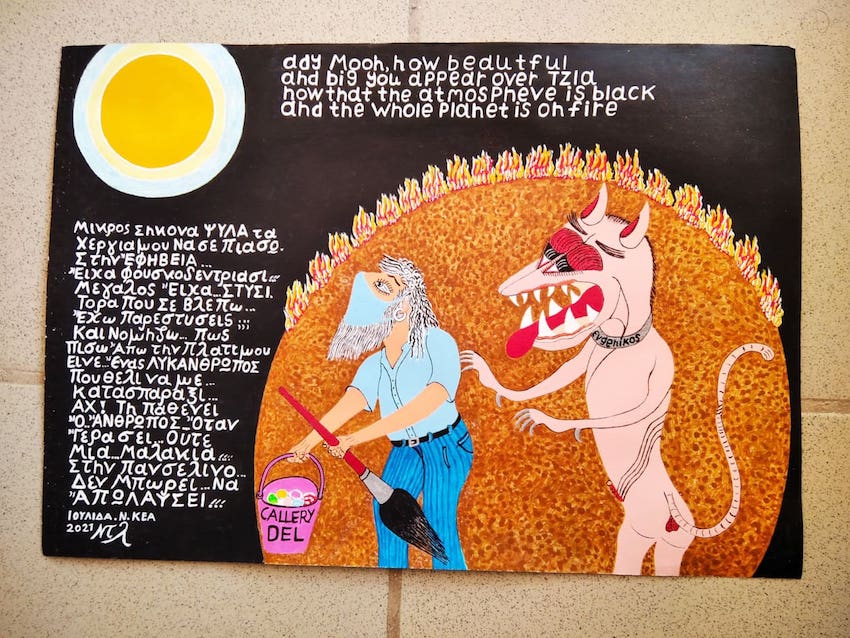 ady Mooh, how beautful
and big you appear over TZIA
now that the atmospheve is black
and the whole Planet is on fire
Μικρος Σηκονα ΨΥΛΑ τα
Χεργια μου Να σε Πιασω.
Στην "ΕΦΗΒΕΙΑ...
"Ειχα Φουσκοδεντριασι...
Μεγαλος "Ειχα... ΣΤΥΣΙ.
Τορα που Σε Βλεπω...
"Εχω Παρεστυσεις;;;
Και Νομηζω... Πως
Πισω "Απω την Πλατη μου
Εινε... "Ενας ΛΥΚΑΝΘΡΩΠΟΣ
Που θελι να με...
Κατασπαραξι...
ΑΧ! Τη Παθενει
"Ο "ΑΝΘΡΩΠΟΣ... "Οταν
Γερασει... Ουτε
Μια... Μαλακια...
Στην Πανσελινο...
Δεν Μπωρει... Να
"ΑΠΩΛΑΥΣΕΙ...
ΙΟΥΛΙΔΑ. Ν. ΚΕΑ
2021 Ντλ
evgenikos
CALLERY
DEL